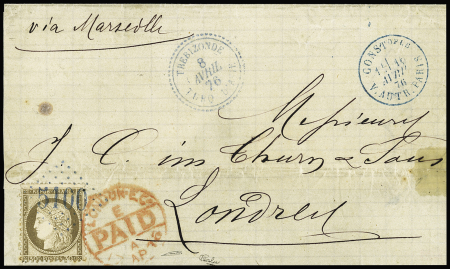 via Marseille
TREBIZONDE
8
AVRIL
76
CONSTPLE
AVRIL
76
V. AUTR. PARIS
Messieurs
J. C. im Thurn & Sons
Londres
5100
LONDON E.C.
E
PAID
AP 76